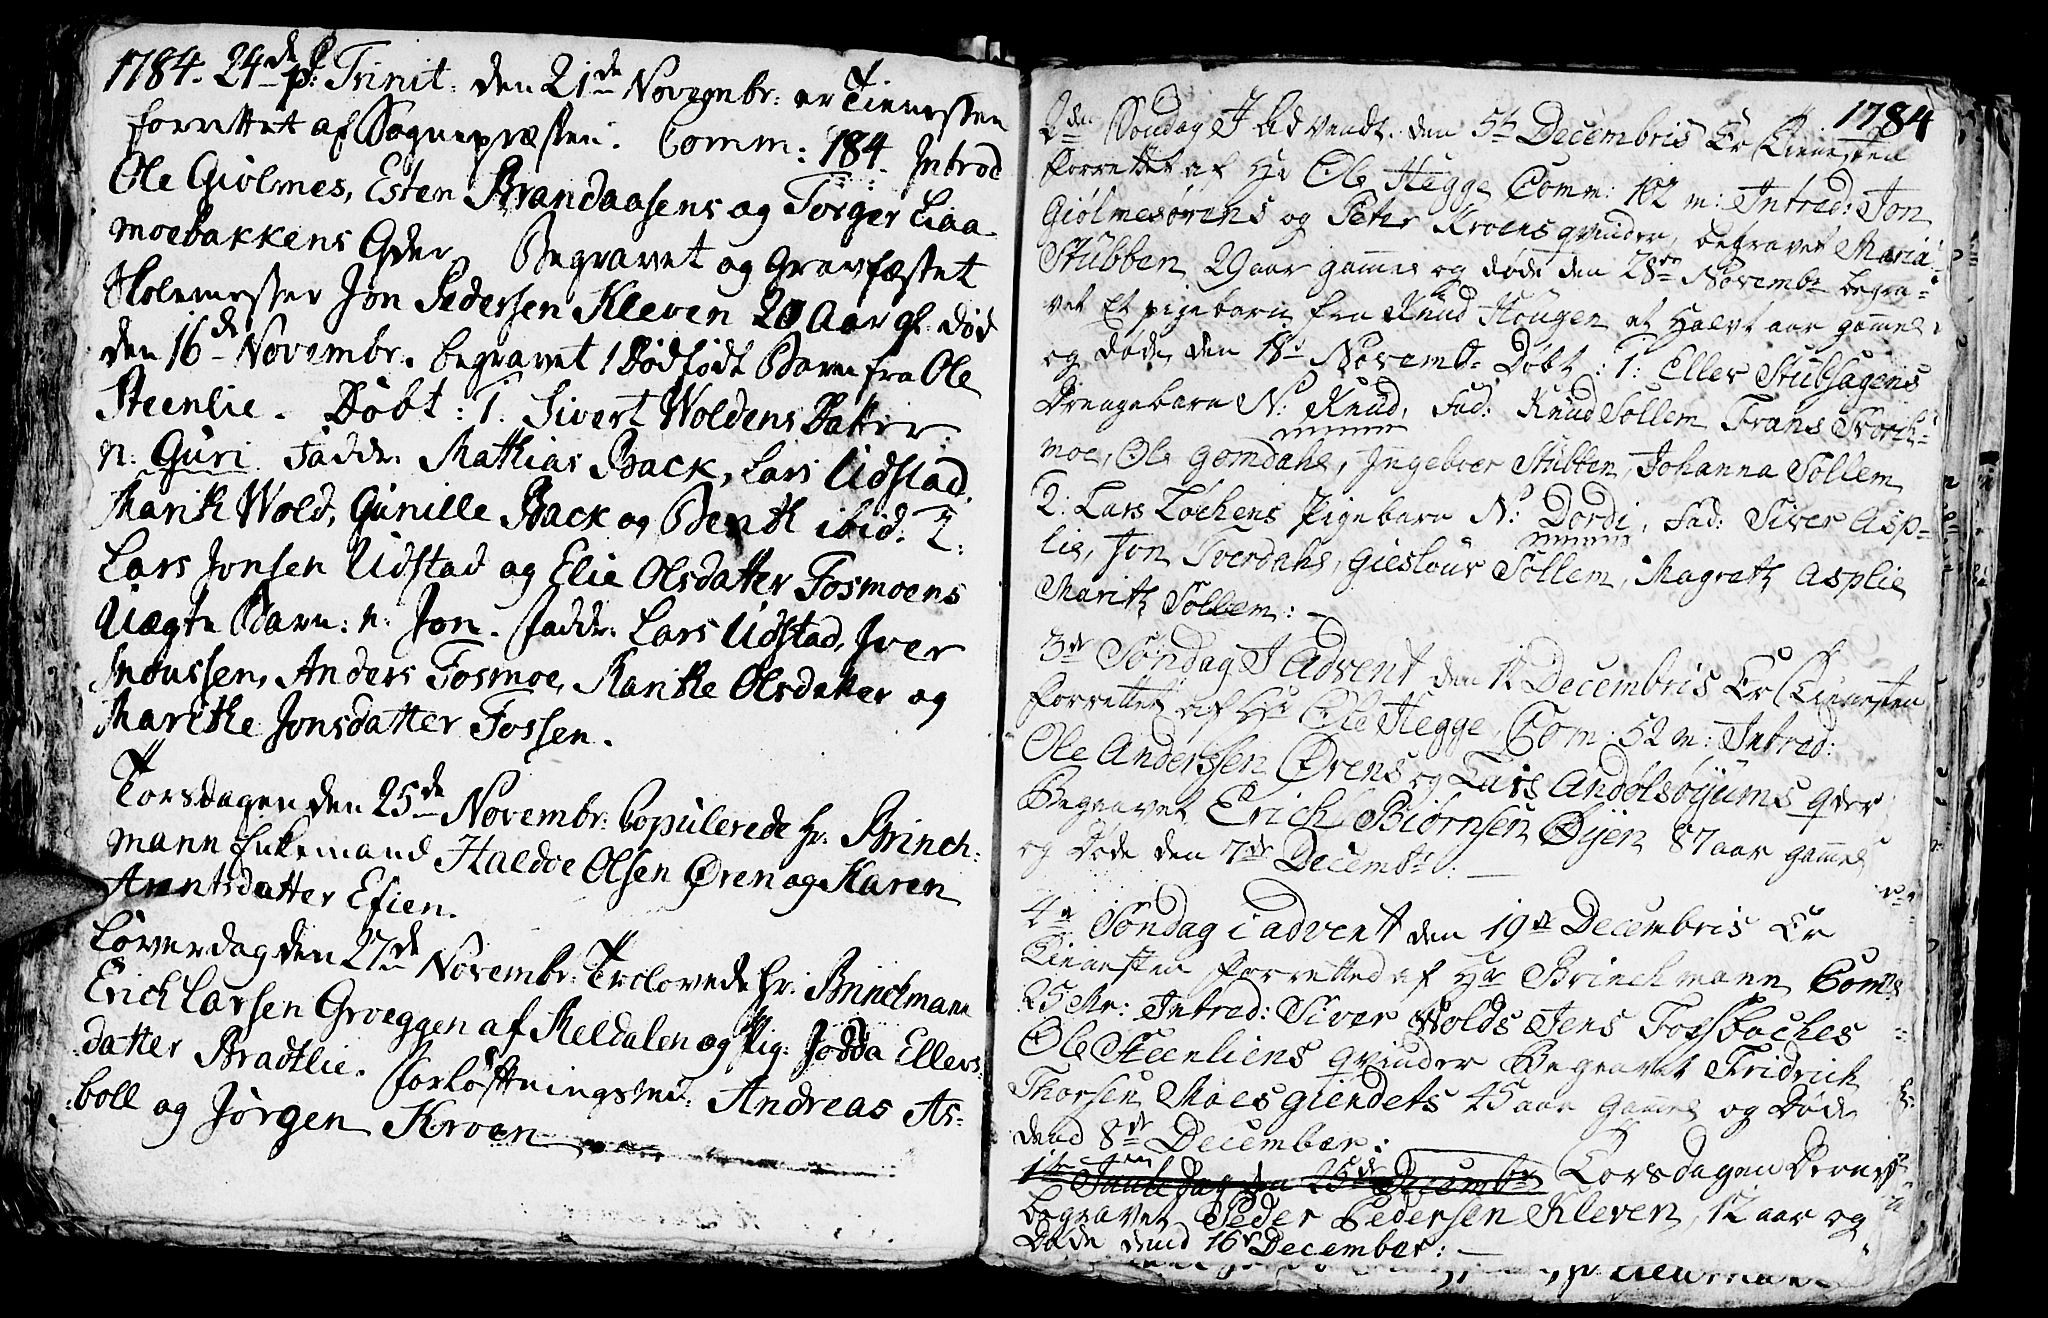 1784. 24de p: Trinit: den 21de Novembr: er Tienesten
forrettet af Sognepræsten. Comm: 184. Introd
Ole Giølmes, Esten Brandaasens og Torger Liaa-
moebakkens Qder. Begravet og Gravfæstet
Skolemester Jon Pedersen Kleven 20 Aar gl. død
den 16de Novembr. begravet 1 Dødfødt Barn fra Ole
Steenlie. Døbt: 1. Sivert Woldens Datter
n: Guri. Fadd: Mathias Back, Lars Udstad,
Marith Wold, Gunille Back og Benth ibid. 2:
Lars Jonsen Udstad og Elie Olsdatter Fosmoens
Uægte Barn: n: Jon. Fadd: Lars Udstad, Iver
Knoussen, Anders Fosmoe, Marithe Olsdatter og
Marithe Jonsdatter Fossen.
Torsdagen den 25de Novembr: Copulerede Hr. Brinch-
mann Enkemand Haldoe Olsen Øren og Karen
Arentsdatter Efien.
Løverdag den 27de Novembr: Trolovede Hr: Brinchmann
Erich Larsen Groeggen af Meldalen og Pig: Jødda Ellers-
datter Bradtlie. Forløftningsmd: Andreas As-
boll og Jørgen Kroen
1784
2den Søndag I Advendt. den 5te Decembris Er Tienesten
forrettet af Hr Ole Hegge Comm: 102 m: Introd: Jon
Giølmesørens og Peter Kroens qvinder, begravet Maria
Stubben 29 aar gammel og døde den 28de Novembr begra-
vet Et pigebarn fra Knud Hougen et Halvt aar gammel
og døde den 18de Novembr Døbt: 1: Eller Stubsagens
Drengebarn N: Knud, Fad: Knud Sollem Frans Svorck-
moe, Ole Gomdahl, Ingebror Stubben, Johanna Sollem
2: Lars Løckens Pigebarn N: Dordi, Fad: Siver Asp-
lie, Jon Sverdahl, Gieslour Sollem, Magreth Asplie
Marith Sollem:
3de Søndag I Advent den 12 Decembris Er Tienesten
forrettet af Hr Ole Hegge, Com: 52 m: Introd:
Ole Anderssen Ørens og Lars Andølsøyums qder
Begravet Erich Biørnsen Øyen 87 aar gammel
og Døde den 7de Decembr:
4de Søndag i advent den 19de Decembris Er
Tienesten forretted af Hr Brinchmann Comm
25 Mr: Introd: Siver Wolds Jens Fossbackes
Ole Steenliens qvinder Begravet Fridrich
Thorsen Moesgiendets 45 aar gammel og Døde
dend 8de December:
1te Jule Dag den 25de Decembr Torsdagen Derneft
begravet Peder Pedersen Kleven, 12 aar og
Døde dend 16de December: